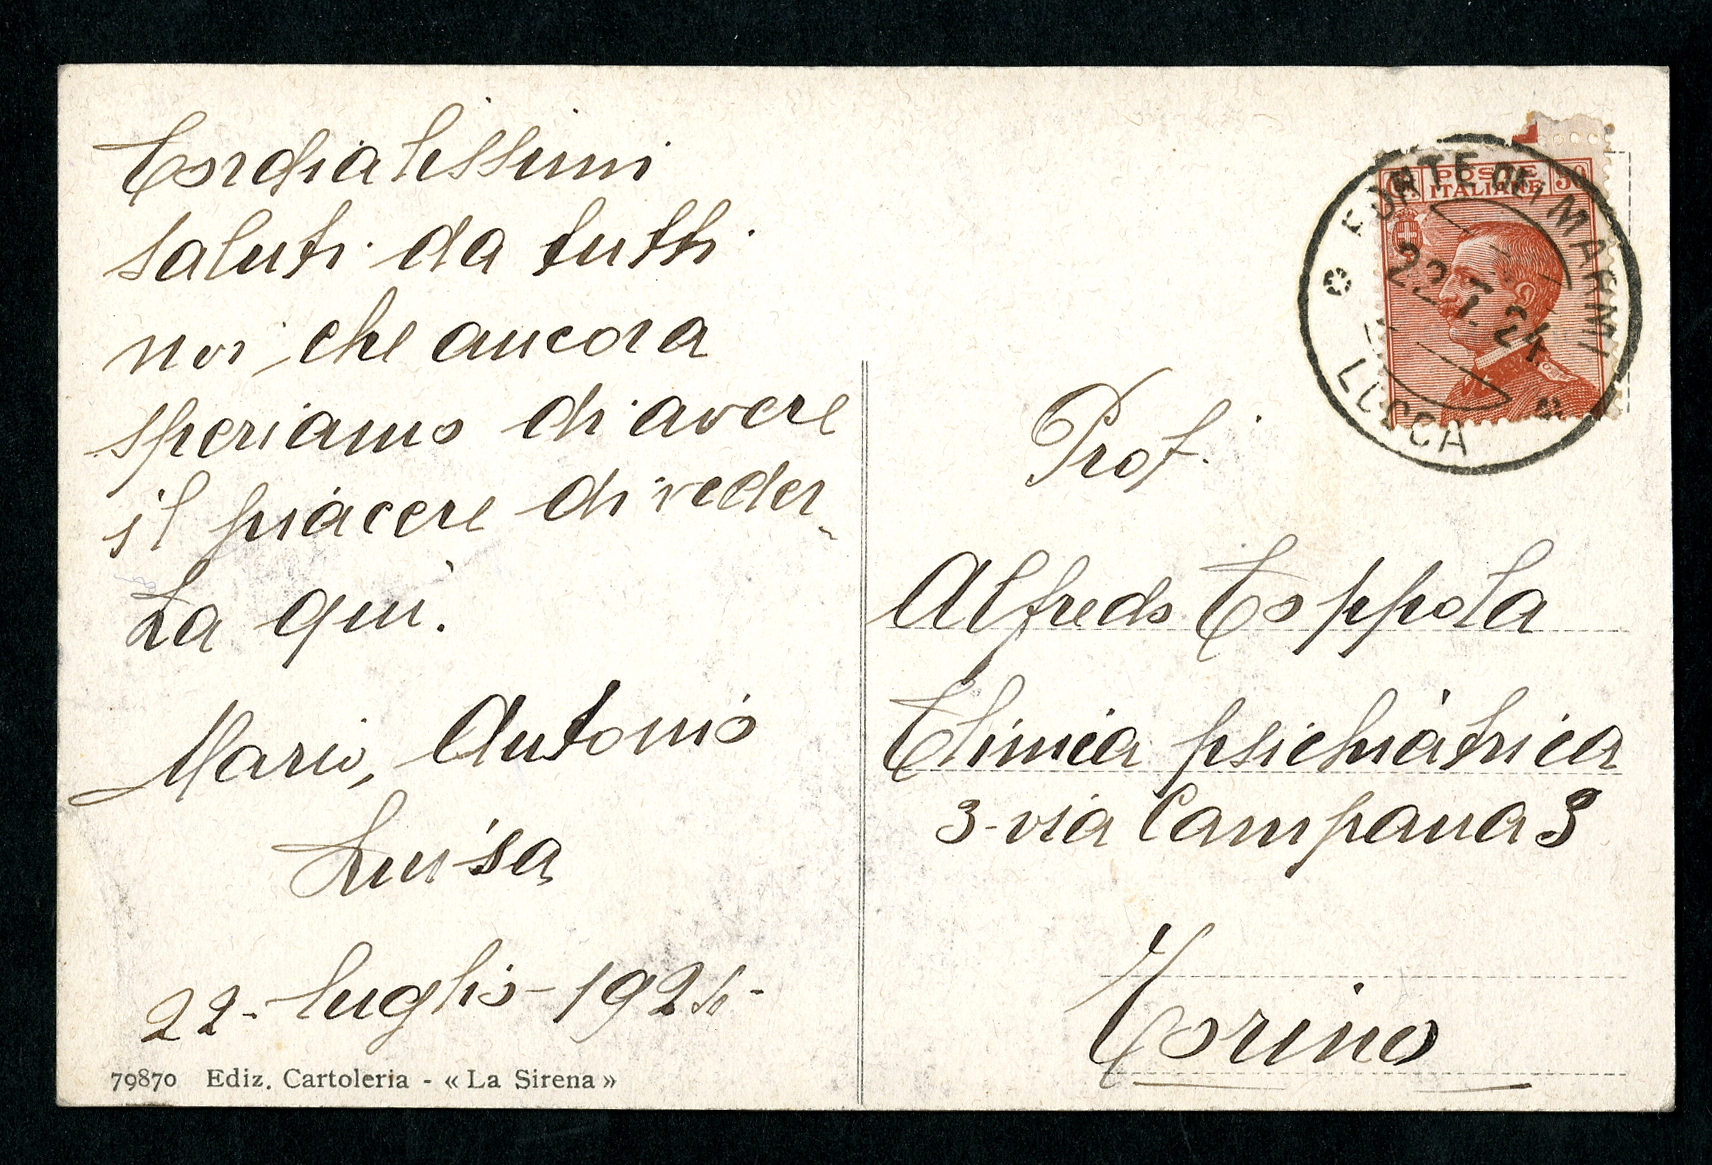 Cordialissimi
saluti da tutti
noi che ancora
speriamo di avere
il piacere di veder-
La qui.
Mario, Antonio
Luisa
22-luglio-1924-
79870 Ediz. Cartoleria - « La Sirena »
POSTE
ITALIANE
FORTE DEI MARMI
22.7.24
LUCCA
Prof.
Alfredo Coppola
Clinica psichiatrica
3-via Campana 3
Torino